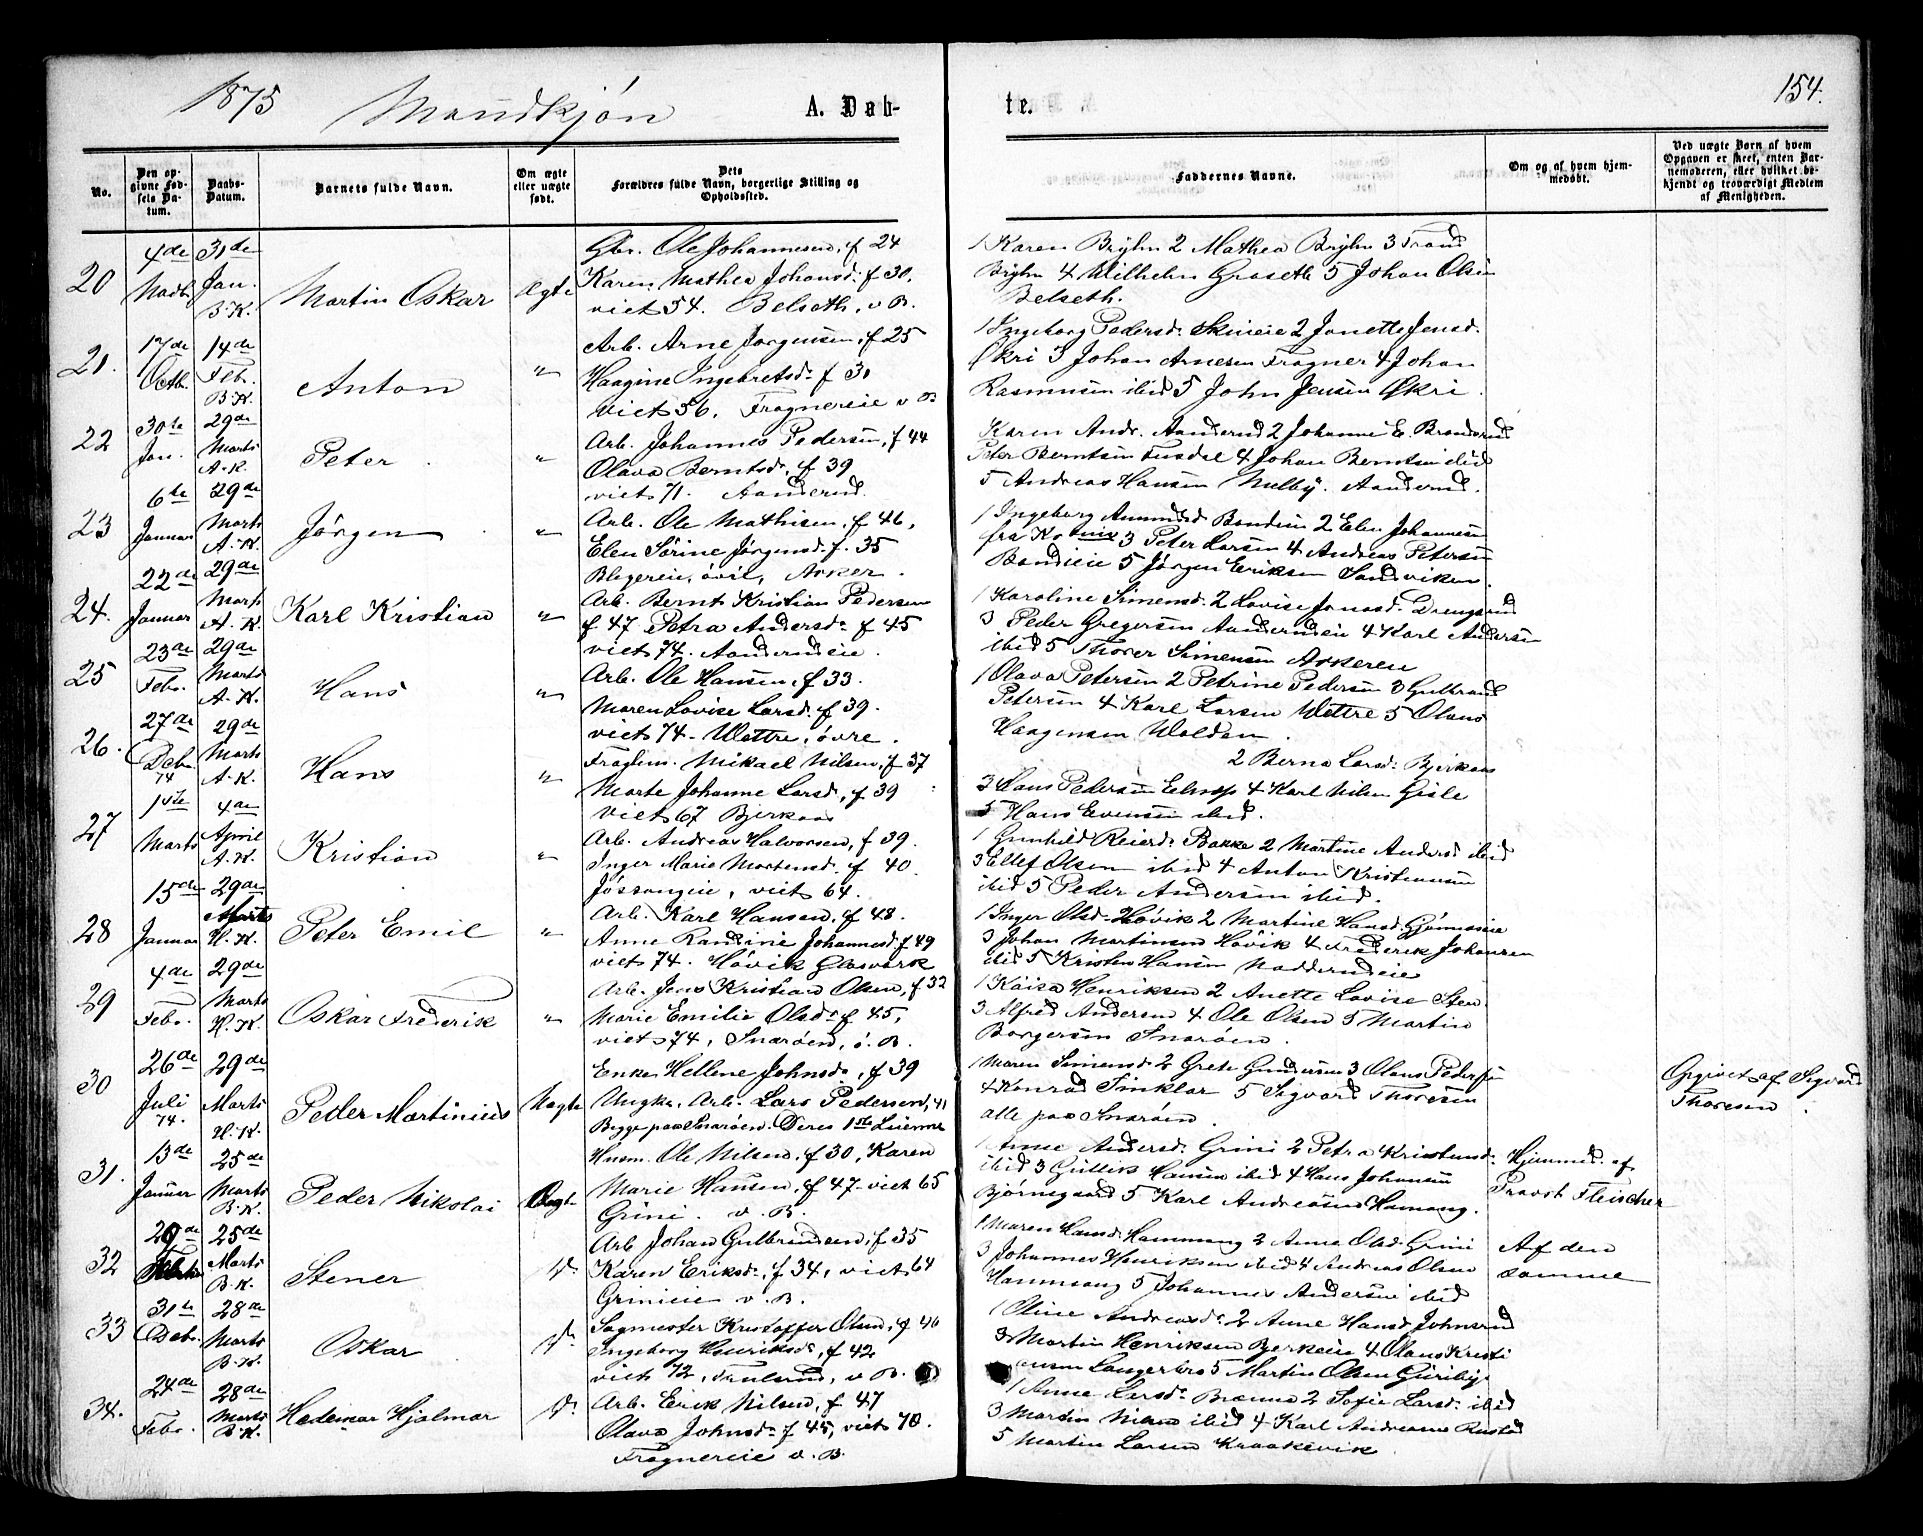 1875 Mandkjøn A. Døb- te. 154.
No. Den opgivne Fødsels Datum. Daabs-Datum. Barnets fulde Navn. Om ægte eller uægte født. Dets Forældres fulde Navn, borgerlige Stilling og Opholdssted. Faddernes Navne. Om og af hvem hjemmedøbt. Ved uægte Børn af hvem Opgaven er skeet, enten Barnemoderen, eller hvilket bekjendt og troværdigt Medlem af Menigheden.
20 4de 31de Jan. B.K. Martin Oskar Ægte
Gbr. Ole Johannesen, f 24
Karen Mathea Johansd. f 30,
viet 54. Belseth. v B.
1 Karen Bryhn 2 Mathea Bryhn 3 Trond
Bryhn 4 Wilhelm Graseth 5 Johan Olsen
Belseth.
21. 17de Octb. 14de Febr. B.K. Anton "
Arb. Arne Jørgensen, f 25
Haagine Ingebretsd. f 31
viet 56. Fragnereie v B
1 Ingeborg Pedersd. Skineie 2 Janette Jensd.
Økri 3 Johan Arnesen Fragner 4 Johan
Rasmusen ibid 5 John Jensen Økri.
22 30te Jan. 29de Marts A.K. Peter "
Arb. Johannes Pedersen, f 44
Olava Berntsd. f 39
viet 71. Aanderud.
Karen Andr. Aanderud 2 Johanne E. Branderud
Peter Berntsen Tusdal 4 Johan Berntsen ibid
5 Andreas Hansen Nulby. Aanderud.
23 6te Januar 29de Marts A.K. Jørgen "
Arb. Ole Mathisen, f 46,
Elen Sørine Jørgensd. f. 35
Blegereie, øvil, Asker.
1 Ingeborg Amundsd Bondeie 2 Elen Johannesen
3 Peter Larsen 4 Andreas Petersen
Bondieie 5 Jørgen Eriksen Sandviken.
24. 22de Januar 29de Marts A.K. Karl Kristian "
Arb. Bernt Kristian Pedersen
f 47 Petra Andersd. f 45
viet 74. Aanderudeie.
1 Karoline Simensd. 2 Lovise Jonasd. Drengsrud
3 Peder Gregersen Aanderudeie 4 Karl Andersen
ibid 5 Thorer Simensen Askereie
25 23de Febr. 29de Marts A.K. Hans "
Arb. Ole Hansen, f 33.
Maren Lovise Larsd. f 39.
viet 74. Wettre, øvre.
1 Olava Petersen 2 Petrine Pedersen 3 Gulbrand
Petersen 4 Karl Larsen Wettre 5 Olaus
Haagensen Wolden.
26. 27de Debr. 74 29de Marts A.K. Hans "
Mikael Nilsen, f 37
Marte Johanne Larsd, f 39
viet 67 Bjerkaas
2 Berna Larsd. Bjerkaas
3 Hans Pedersen Elnop 4 Karl Nilsen Gisle
5 Hans Evensen ibid.
27 Marts 4de April A.K. Kristian "
Arb. Andreas Halvorsen, f 39.
Inger Marie Mortensd. f 40.
Jøssongeie, viet 64.
1 Gunhild Reierd. Bakke 2 Martine Andersd ibid
3 Ellef Olsen ibid 4 Anton Kristiansen
ibid 5 Peder Andersen ibid.
28 15de Januar 29de Marts H.K. Peter Emil "
Arb. Karl Hansen, f 48.
Anne Randine Johannesd. f 49
viet 74. Høvik Glasværk
1 Inger Olsd. Høvik 2 Martine Hansd.
3 Johan Martinsen Høvik 4 Frederik Johansen
ibid 5 Kristen Hansen Nadderudeie
29 4de Febr. 29de Marts H.K. Oskar Frederik "
Arb. Jens Kristian Olsen, f 32
Marie Emilie Olsd. f 45,
viet 74, Snarøen, ø. B.
1 Kaisa Henriksen 2 Anette Lovise Sten
3 Alfred Andersen 4 Ole Olsen 5 Martin
Borgersen Snarøen.
30 26de Juli 74. 29de Marts H.K. Peder Martinius Uægte
Enke Hellene Johnsd., f 39
Ungkr. Arb. Lars Pedersen, 41
Begge paa Snarøen. Deres 1ste Leierm.
1 Maren Simensd. 2 Grete Gundersen 3 Olaus Pedersen
4 Konrad Sinklar 5 Sigvard Thoresen
alle paa Snarøen.
Opgivet af Sigvard
Thoresen.
31. 13de Januar 25de Marts B.K. Peder Nikolai Ægte
Husm. Ole Nilsen, f 30, Karen
Marie Hansen, f 47 viet 65
Grini. v. B.
1 Anne Andersd. Grini 2 Petra Kristensd.
ibid 3 Gullik Hansen ibid 4 Hans Johansen
Bjørnegaard 5 Karl Andreasen Hamang.
Hjemmed. af
Provst Fleischer
32 29de 25de Marts B.K. Stener
Arb Johan Gulbrandsen, f 35
Karen Eriksd., f 34, viet 64
Grinieie v. B.
1 Maren Hansd Hammang 2 Anne Olsd. Grini
3 Johannes Henriksen ibid 4 Andreas Olsen
Hammang 5 Johannes Andersen ibid
Af den
samme
33 31te Debr. 28de Marts B.K. Oskar
Sagmester Kristoffer Olsen, f 40
Ingeborg Henriksd., f 42
viet 72, v B.
1 Oline Andreasd. 2 Anne Hansd Johnsrud
3 Martin Henriksen Bjerkeie 4 Olaus Kristi
ansen 5 Martin Olsen
34. 24de Febr. 28de Marts B.K. Hedemar Hjalmar
Arb. Erik Nilsen, f 47
Olava Johnsd. f 45, viet 70.
Fragnereie v. B.
1 Anne Larsd. Brenna 2 Sofie Larsd. ibid
3 Martin Nilsen ibid 4 Karl Andreasen Rustad
5 Martin Larsen Kraakevik.